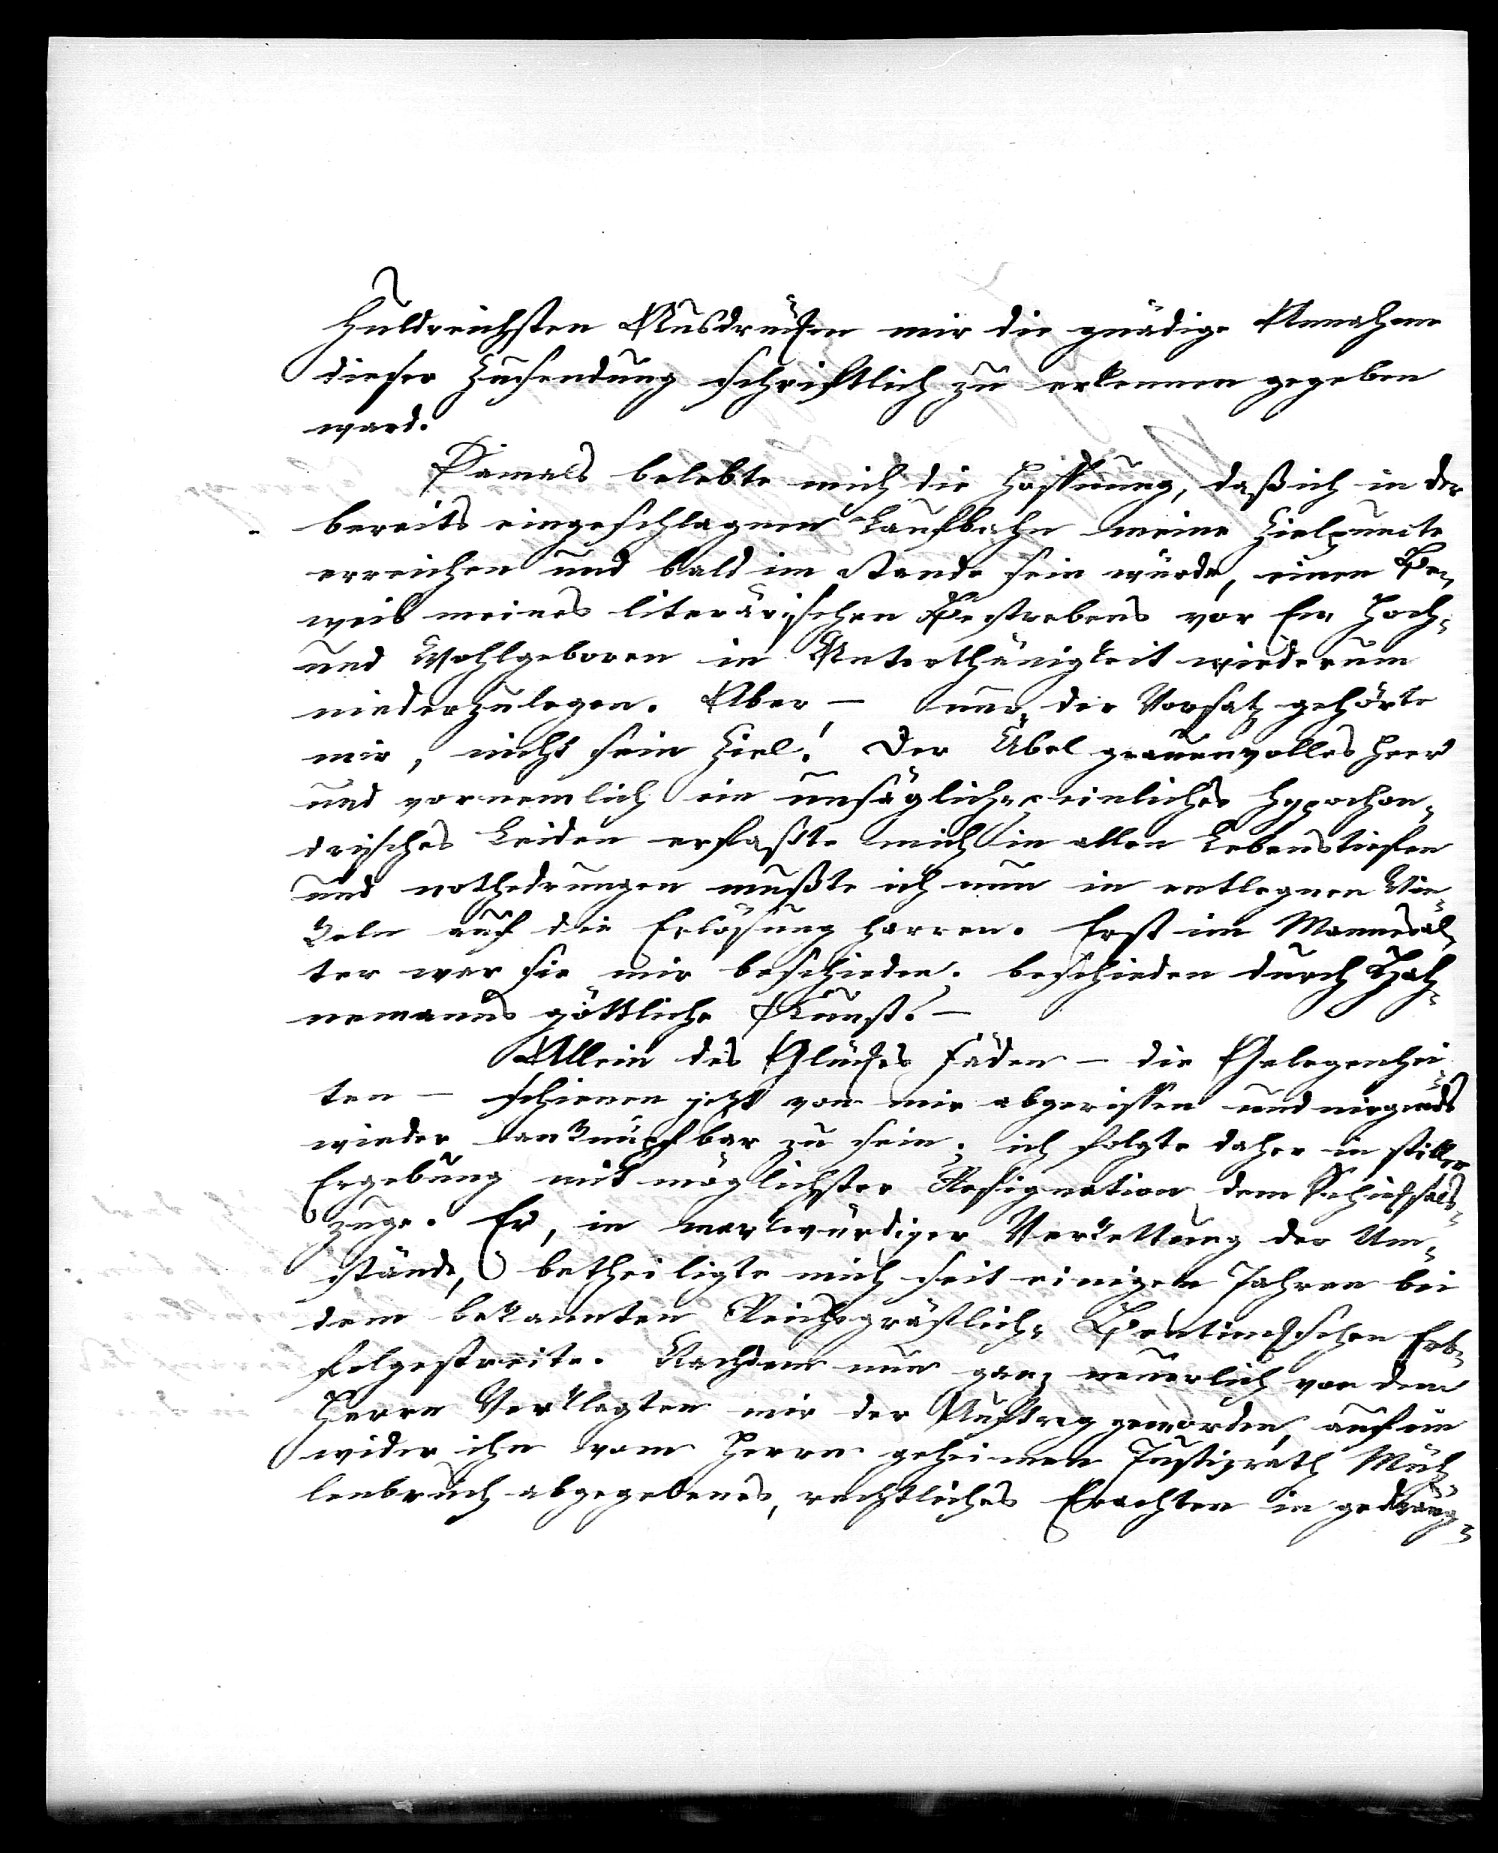 huldreichsten Ausdrücken mir die gnädige Annahme
dieser Zusendung schriftlich zu erkennen gegeben
ward.
Damals belebte mich die Hoffnung, daß ich in der
bereits eingeschlagnen Laufbahn meine Zielpuncte
erreichen und bald im stande sein würde, einen Be-
weis meines literärischen Bestrebens vor Ew. Hoch-
und Wohlgeboren in Unterthänigkeit wiederum
niederzulegen. Aber — nur der Vorsatz gehörte
mir, nicht sein Ziel! Der Übel grauenvolles Heer
und vornemlich ein unsäglich peinliches hypochon-
drisches Leiden erfaßte mich in allen Lebenstiefen
und nothgedrungen mußte ich nun in entlegnen Win-
keln auf die Erlösung harren. Erst im Mannesal-
ter war sie mir beschieden; beschieden durch Hah-
nemanns göttliche Kunst. —
Allein des Glückes Fäden — die Gelegenhei-
ten — schienen jetzt von mir abgerissen und nirgends
wieder anknüpfbar zu sein; ich folgte daher in stiller
Ergebung mit möglichster Resignation dem Schicksals-
zuge. Er, in merkwürdiger Verkettung der Um-
stände, betheiligte mich seit einigen Jahren bei
dem bekannten Reichsgräflich- Bentinckschen Erb-
folgestreite. Nachdem nun ganz neuerlich von dem
Herrn Verklagten mir der Auftrag geworden, auf ein
wider ihn vom Herrn geheimen Justizrath Müh-
lenbruch abgegebenes, rechtliches Erachten in gedräng-